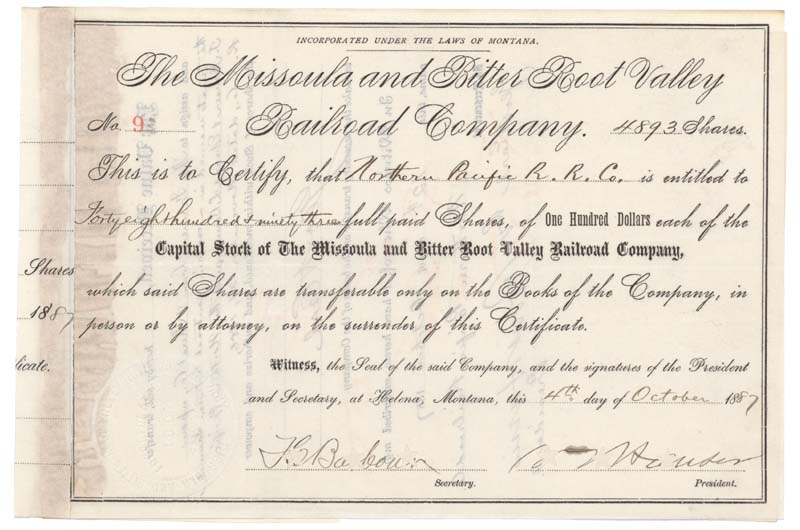 INCORPORATED UNDER THE LAWS OF MONTANA.
The Missoula and Bitter Root Valley
No. 9 Railroad Company. 4893 Shares.
This is to Certify, that Northern Pacific R. R. Co. is entitled to
Forty eight hundred & ninety three full paid Shares, of One Hundred Dollars each of the
Capital Stock of The Missoula and Bitter Root Valley Railroad Company,
which said Shares are transferable only on the Books of the Company, in
person or by attorney, on the surrender of this Certificate.
Witness, the Seal of the said Company, and the signatures of the President
and Secretary, at Helena, Montana, this 4th day of October 1887
Secretary. President.
Shares
1887
licate.